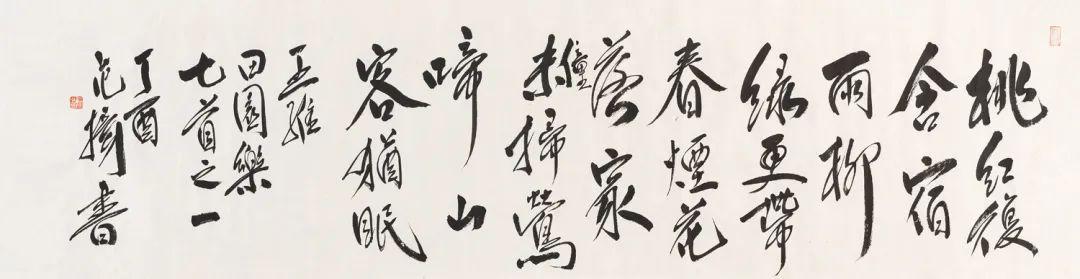 桃红復
含宿
雨柳
緑更帶
春煙花
落家
僮未掃鶯
啼山
客猶眠
王維
田園樂
七首之一
丁酉
范書